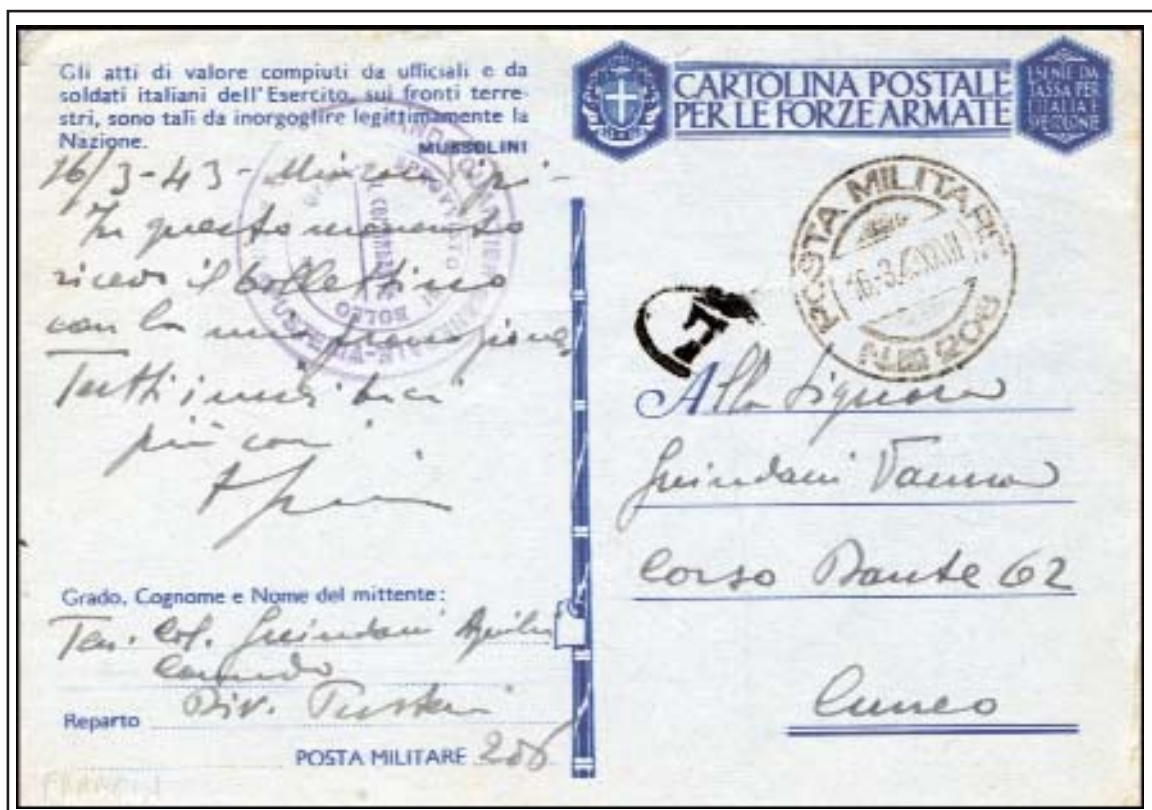 Gli atti di valore compiuti da ufficiali e da
soldati italiani dell'Esercito, sui fronti terre-
stri, sono tali da inorgoglire legittimamente la
Nazione.
MUSSOLINI
16/3-43-
In questo momento
ricevi il bollettino
con la mia
Tutti i miei baci
più cari
Grado, Cognome e Nome del mittente:
Ten. Col. Guindani
Comando
Reparto Div. Pusteria
POSTA MILITARE 206
CARTOLINA POSTALE
PER LE FORZE ARMATE
ESENTE DA
TASSA PER
L'ITALIA E
POSTA MILITARE
16.3.
N. 206
T
BOLLO
Alla Signora
Guindani Vanna
Corso Dante 62
Cuneo